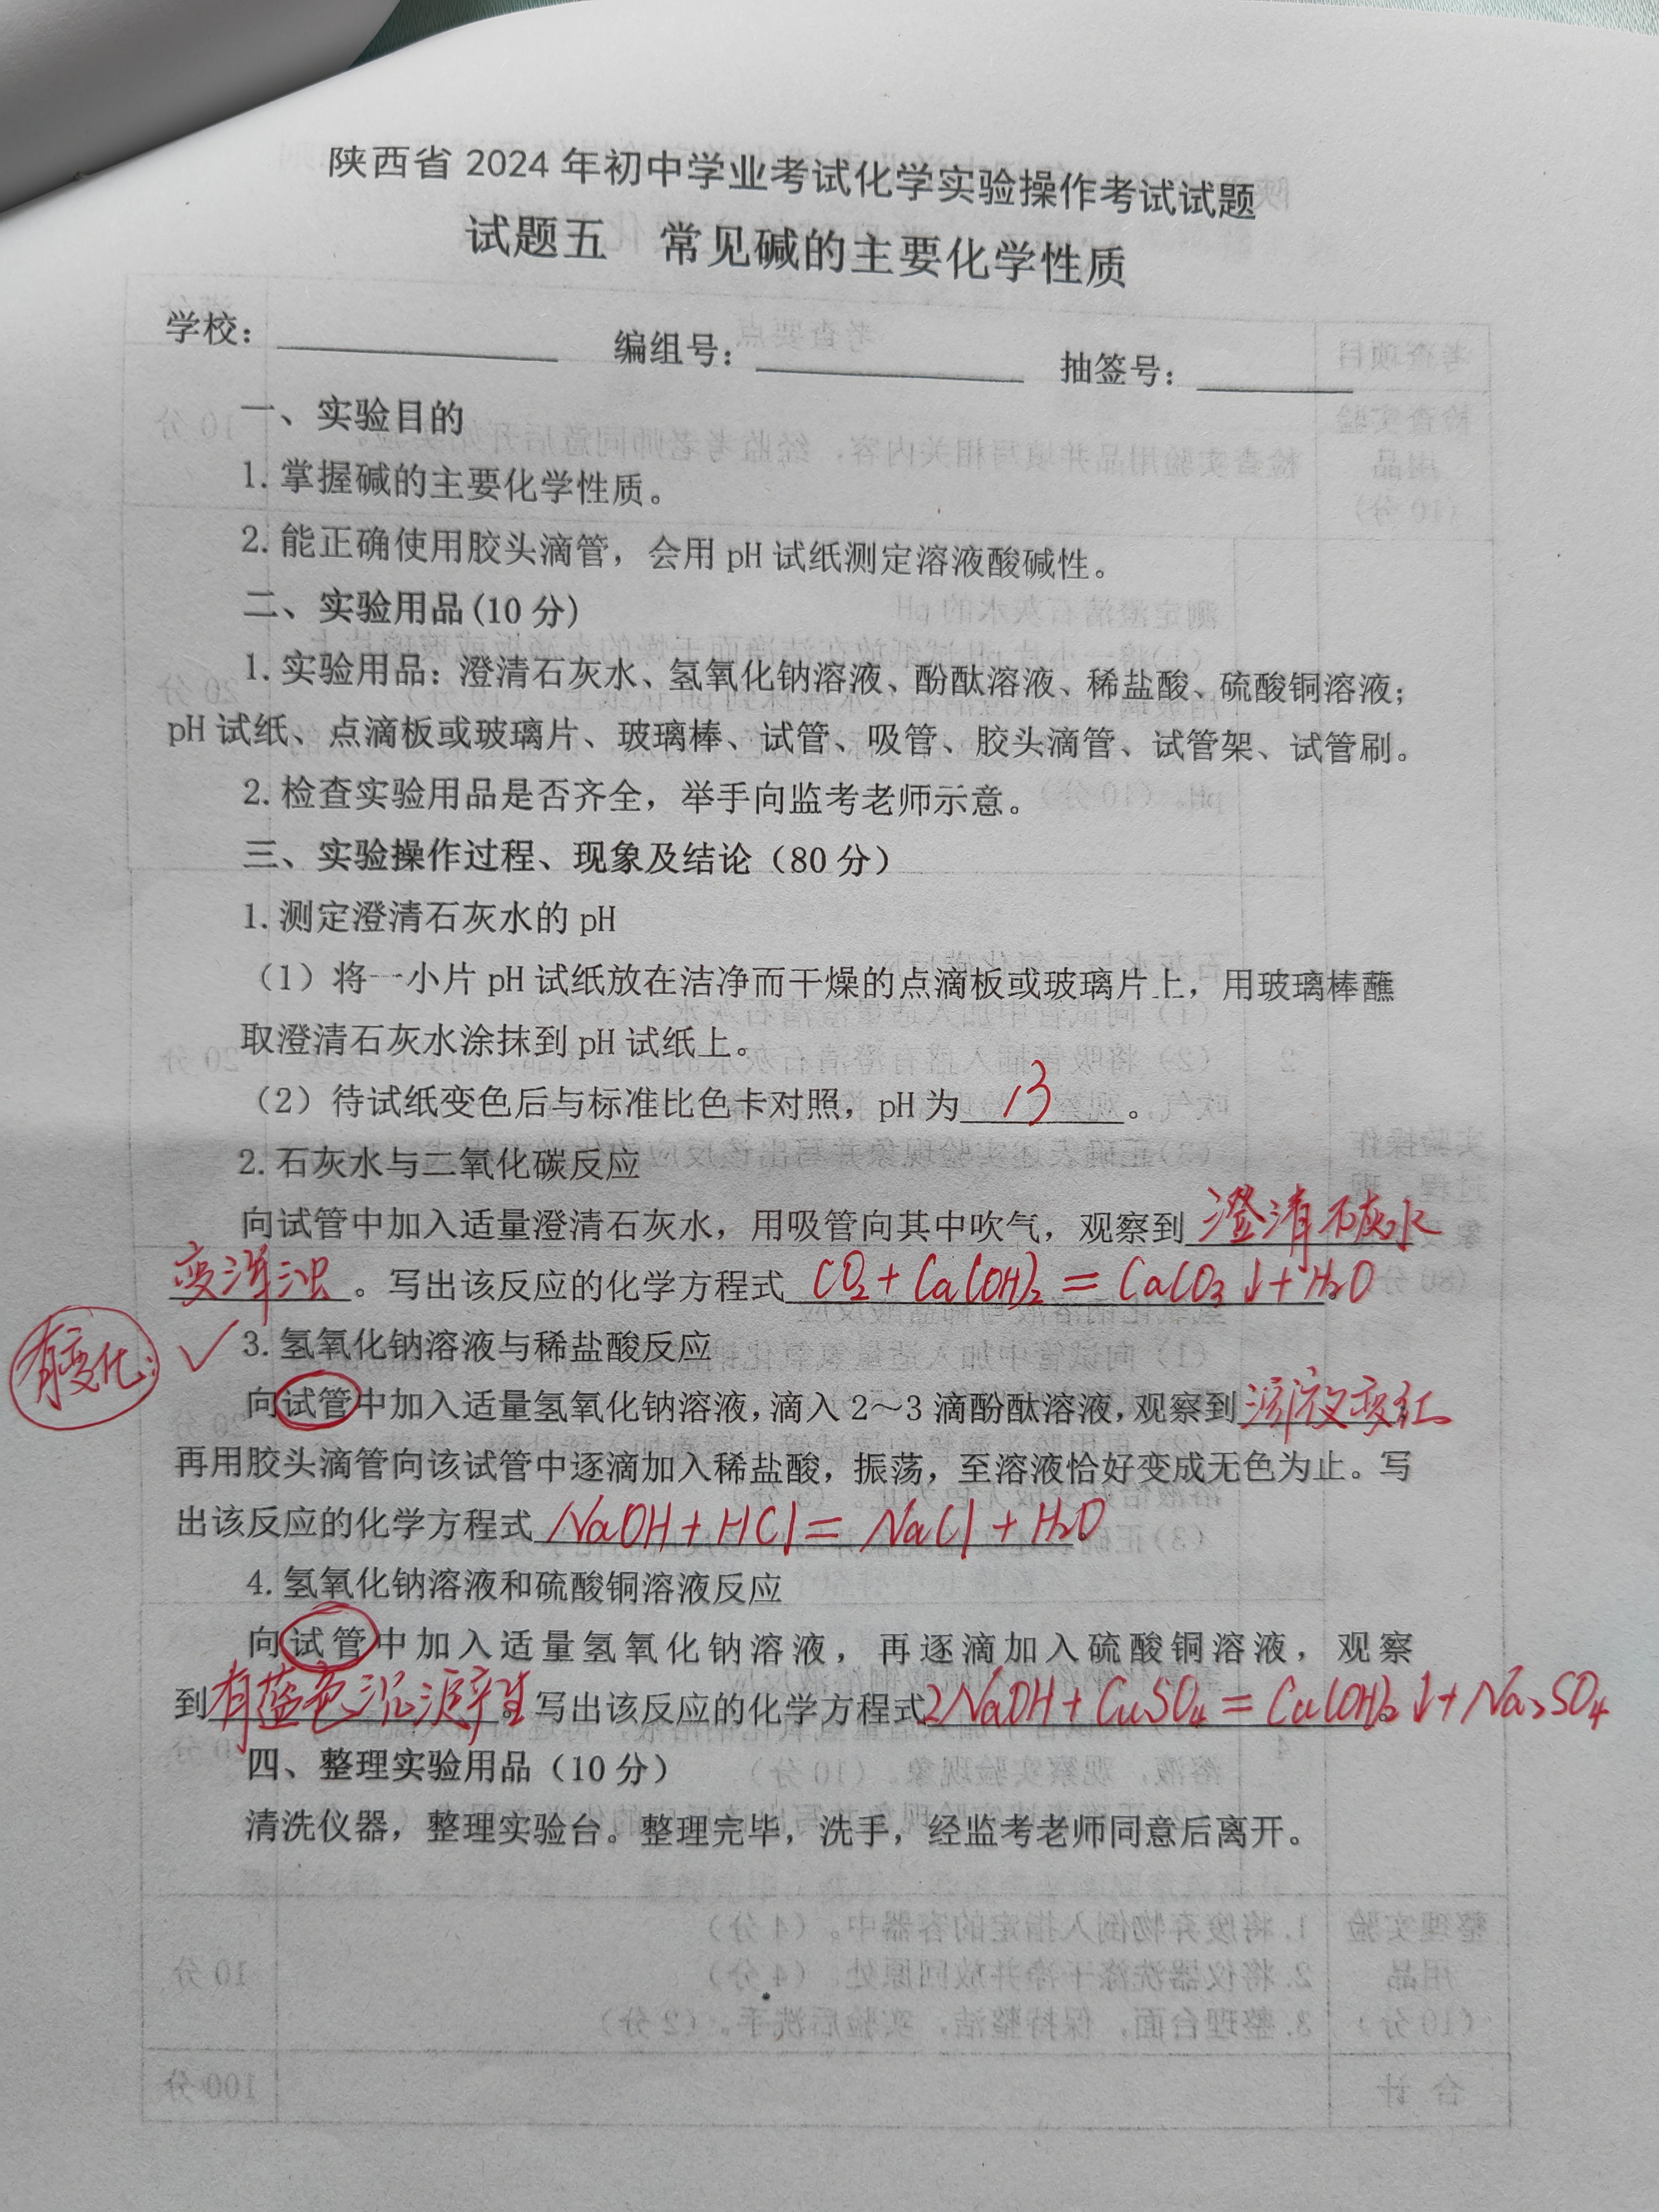 陕西省 2024 年初中学业考试化学实验操作考试试题
试题五　常见碱的主要化学性质
学校：　编组号：　抽签号：
一、实验目的
1. 掌握碱的主要化学性质。
2. 能正确使用胶头滴管，会用 pH 试纸测定溶液酸碱性。
二、实验用品(10 分)
1. 实验用品：澄清石灰水、氢氧化钠溶液、酚酞溶液、稀盐酸、硫酸铜溶液；
pH 试纸、点滴板或玻璃片、玻璃棒、试管、吸管、胶头滴管、试管架、试管刷。
2. 检查实验用品是否齐全，举手向监考老师示意。
三、实验操作过程、现象及结论（80 分）
1. 测定澄清石灰水的 pH
（1）将一小片 pH 试纸放在洁净而干燥的点滴板或玻璃片上，用玻璃棒蘸
取澄清石灰水涂抹到 pH 试纸上。
（2）待试纸变色后与标准比色卡对照，pH 为 13 。
2. 石灰水与二氧化碳反应
向试管中加入适量澄清石灰水，用吸管向其中吹气，观察到 澄清石灰水
变浑浊 。写出该反应的化学方程式 CO₂ + Ca(OH)₂ = CaCO₃↓ + H₂O
有变化: ✓ 3. 氢氧化钠溶液与稀盐酸反应
向试管中加入适量氢氧化钠溶液，滴入 2～3 滴酚酞溶液，观察到 溶液变红
再用胶头滴管向该试管中逐滴加入稀盐酸，振荡，至溶液恰好变成无色为止。写
出该反应的化学方程式 NaOH + HCl = NaCl + H₂O
4. 氢氧化钠溶液和硫酸铜溶液反应
向试管中加入适量氢氧化钠溶液，再逐滴加入硫酸铜溶液，观察
到 有蓝色沉淀产生 。写出该反应的化学方程式 2NaOH + CuSO₄ = Cu(OH)₂↓ + Na₂SO₄
四、整理实验用品（10 分）
清洗仪器，整理实验台。整理完毕，洗手，经监考老师同意后离开。